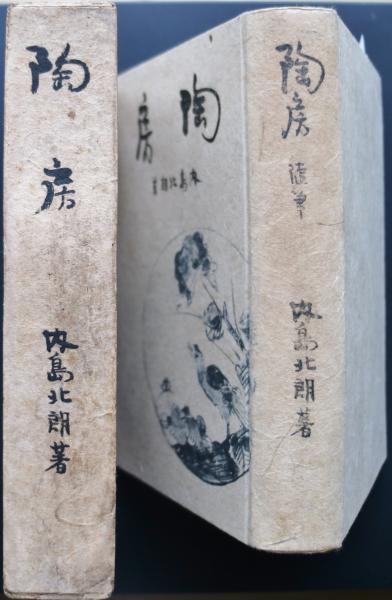 陶房
内島北朗著
陶房
内島北朗著
陶房
随筆
内島北朗著